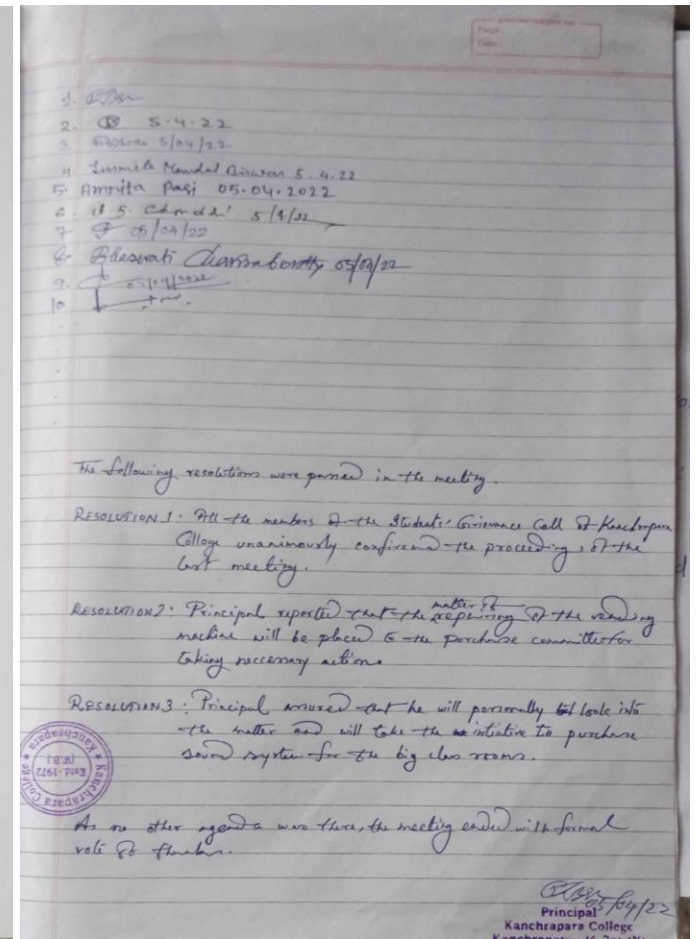 Page
Date
1.
2. 5.4.22
3. 5/04/22
4 Mondal Biswas 5.4.22
5. Amrita Pasi 05.04.2022
6. 5/4/22
7 05/04/22
8. Bhaswati Chakraborty 05/04/22
9. 05/04/2022
10
The following resolutions were passed in the meeting.
RESOLUTION 1: All the members of the Students' Grievance Cell of Kanchrapara
College unanimously confirmed the proceedings of the
last meeting.
matter of
RESOLUTION 2: Principal reported that the repairing of the vending
machine will be placed to the purchase committee for
taking neccessary action.
RESOLUTION 3: Principal assured that he will personally look into
the matter and will take the initiative to purchase
sound system for the big class rooms.
Kanchrapara College * Kanchrapara *
(W.B.)
Estd-1972
As no other agenda was there, the meeting ended with formal
vote of thanks.
05/04/22
Principal
Kanchrapara College